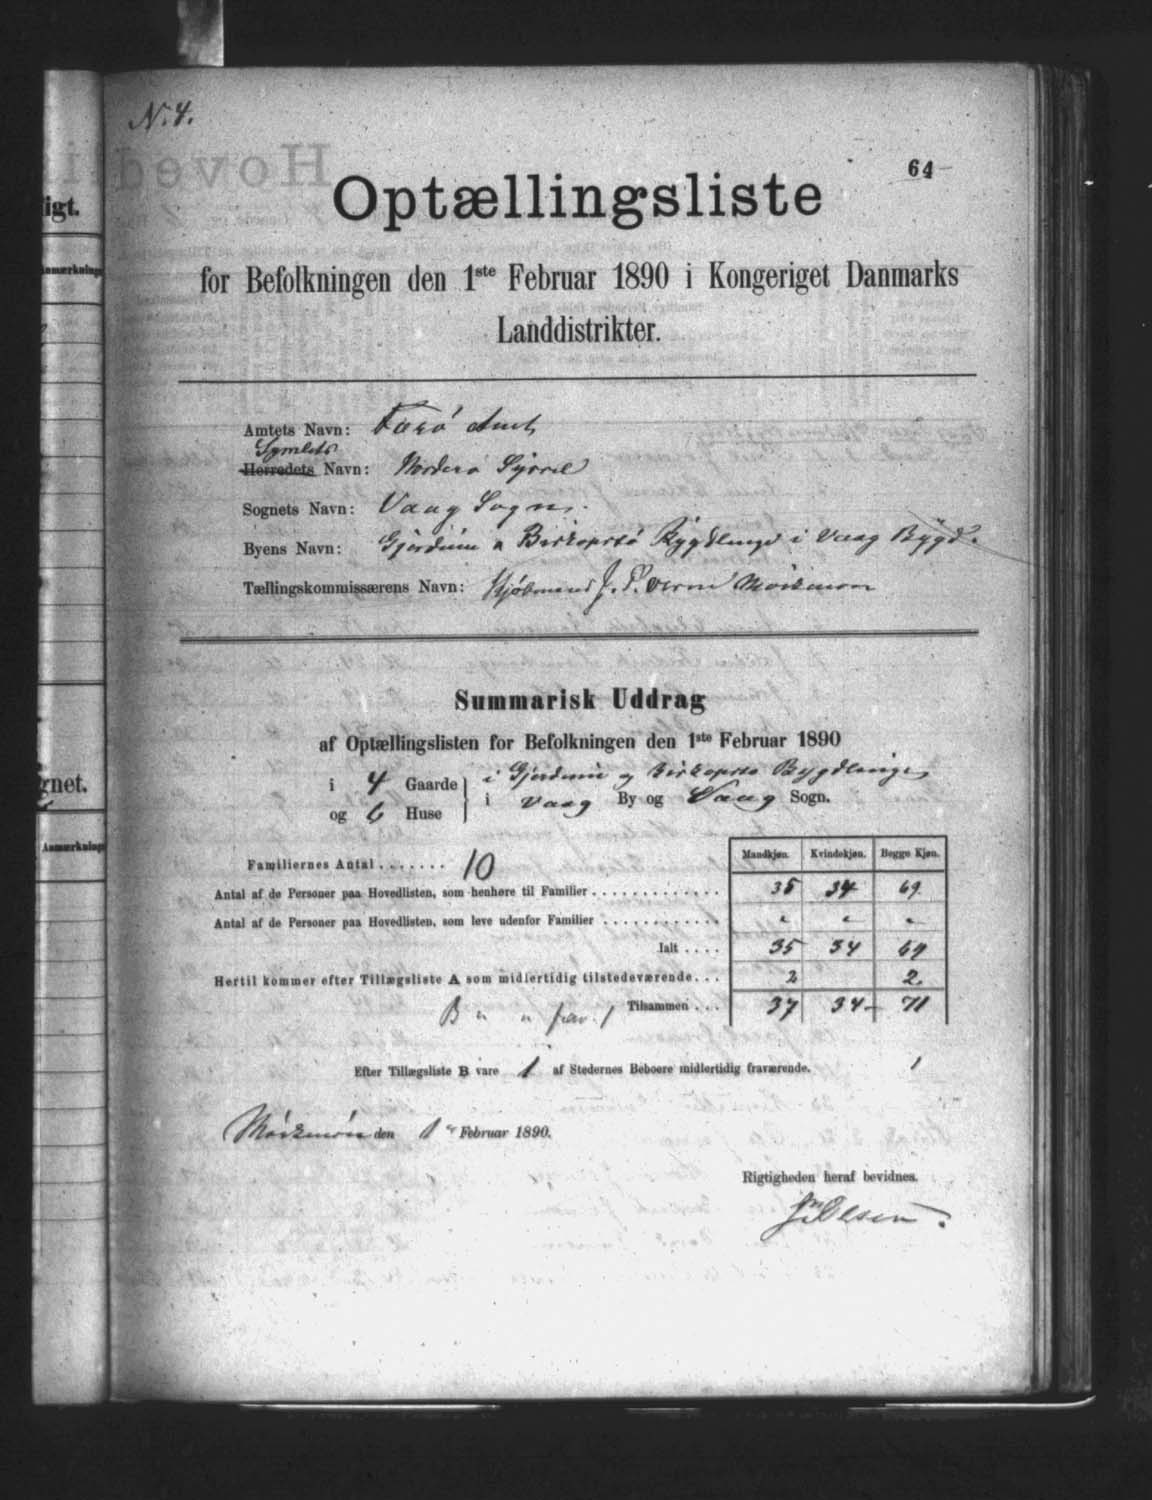 N. 4.
64
Optællingsliste
for Befolkningen den 1ste Februar 1890 i Kongeriget Danmarks
Landdistrikter.
Amtets Navn: Færø Amt
Syslets
Herredets Navn: Norderø Syssel
Sognets Navn: Vaag Sogn.
Byens Navn: Bygdlinge i Vaag Bygd.
Tællingskommissærens Navn: Kjøbmand J. F.
Summarisk Uddrag
af Optællingslisten for Befolkningen den 1ste Februar 1890
i 4 Gaarde i Bygdlinge
og 6 Huse i Vaag By og Vaag Sogn.
Mandkjøn. Kvindekjøn. Begge Kjøn.
Familiernes Antal ....... 10
Antal af de Personer paa Hovedlisten, som henhøre til Familier ............. 35 34 69
Antal af de Personer paa Hovedlisten, som leve udenfor Familier ............ " " "
Ialt .... 35 34 69
Hertil kommer efter Tillægsliste A som midlertidig tilstedeværende... 2 2.
B " " frav. 1 Tilsammen ... 37 34 71
Efter Tillægsliste B vare 1 af Stedernes Beboere midlertidig fraværende. 1
den 1 Februar 1890.
Rigtigheden heraf bevidnes.
Olsen.
igt.
Anmærkning
gnet.
Anmærkning